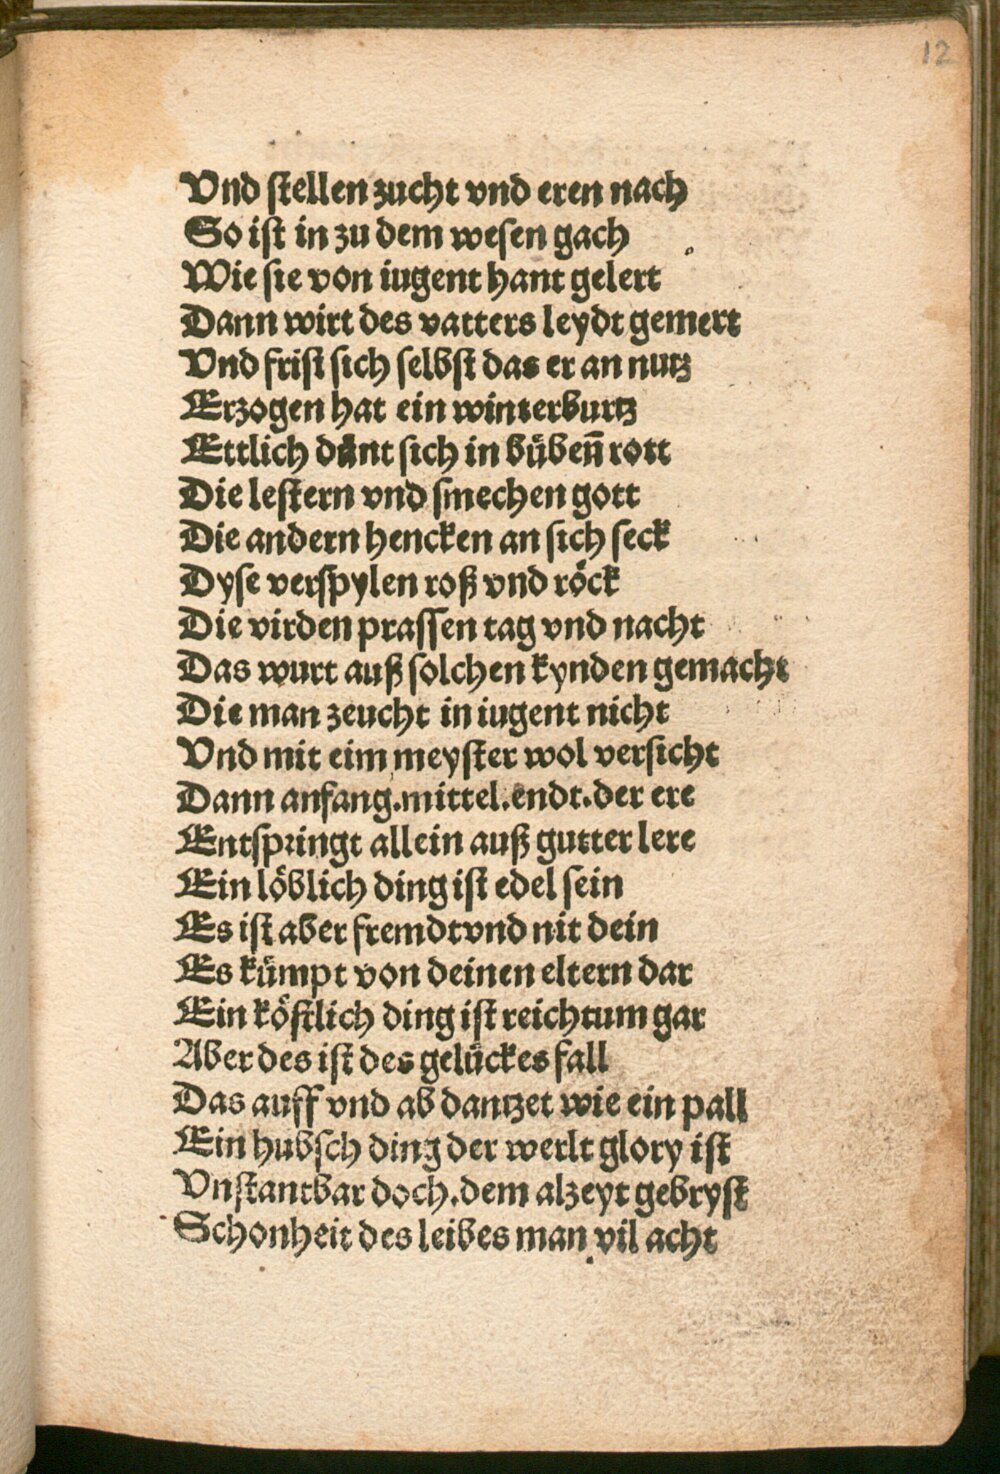 12
Vnd stellen zucht vnd eren nach
So ist in zu dem wesen gach
Wie sie von iugent hant gelert
Dann wirt des vatters leydt gemert
Vnd frist sich selbst das er an nutz
Erzogen hat ein winterburtz
Ettlich důnt sich in bübenn̄ rott
Die lestern vnd smechen gott
Die andern hencken an sich seck
Dyse verspylen roß vnd röck
Die virden prassen tag vnd nacht
Das wurt auß solchen kynden gemacht
Die man zeucht in iugent nicht
Vnd mit eim meyster wol versicht
Dann anfang.mittel.endt.der ere
Entspringt allein auß gutter lere
Ein löblich ding ist edel sein
Es ist aber fremdt vnd nit dein
Es kümpt von deinen eltern dar
Ein köstlich ding ist reichtum gar
Aber des ist des gelückes fall
Das auff vnd ab dantzet wie ein pall
Ein hubsch ding der werlt glory ist
Vnstantbar doch.dem alzeyt gebryst
Schonheit des leibes man vil acht